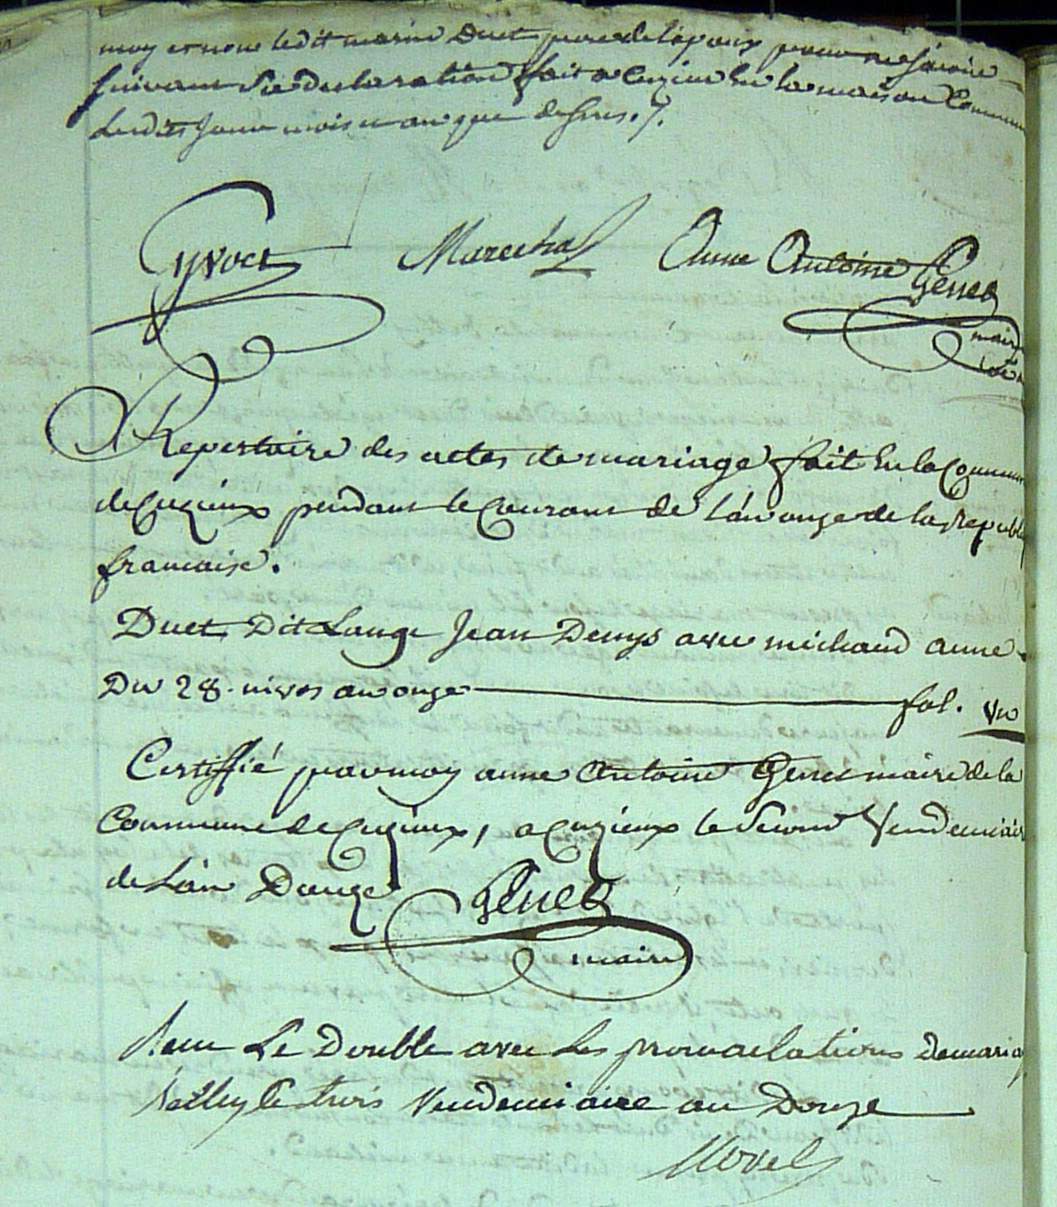 moy et non ledit marin Duet pere de l'epoux pour ne savoir
suivant sa declaration fait a Cuzieu en la maison Commune
lesdits jour mois et an que dessus.
Gyvoct Marechal Anne Antoine Genet
maire
Repertoire des actes de mariage fait en la Commune
de Cuzieux pendant le Courant de l'an onze de la Republ
francaise.
Duet Dit Lange Jean Denys avec michaud anne
Du 28. nivos an onze fol. un
Certiffié par moy anne Antoine Genet maire de la
Commune de Cuzieux, a Cuzieux le Second Vendemiaire
de L'an Douze Genet
maire
Recu Le Double avec les proclamations de mariage
Belley le trois Vendemiaire an Douze